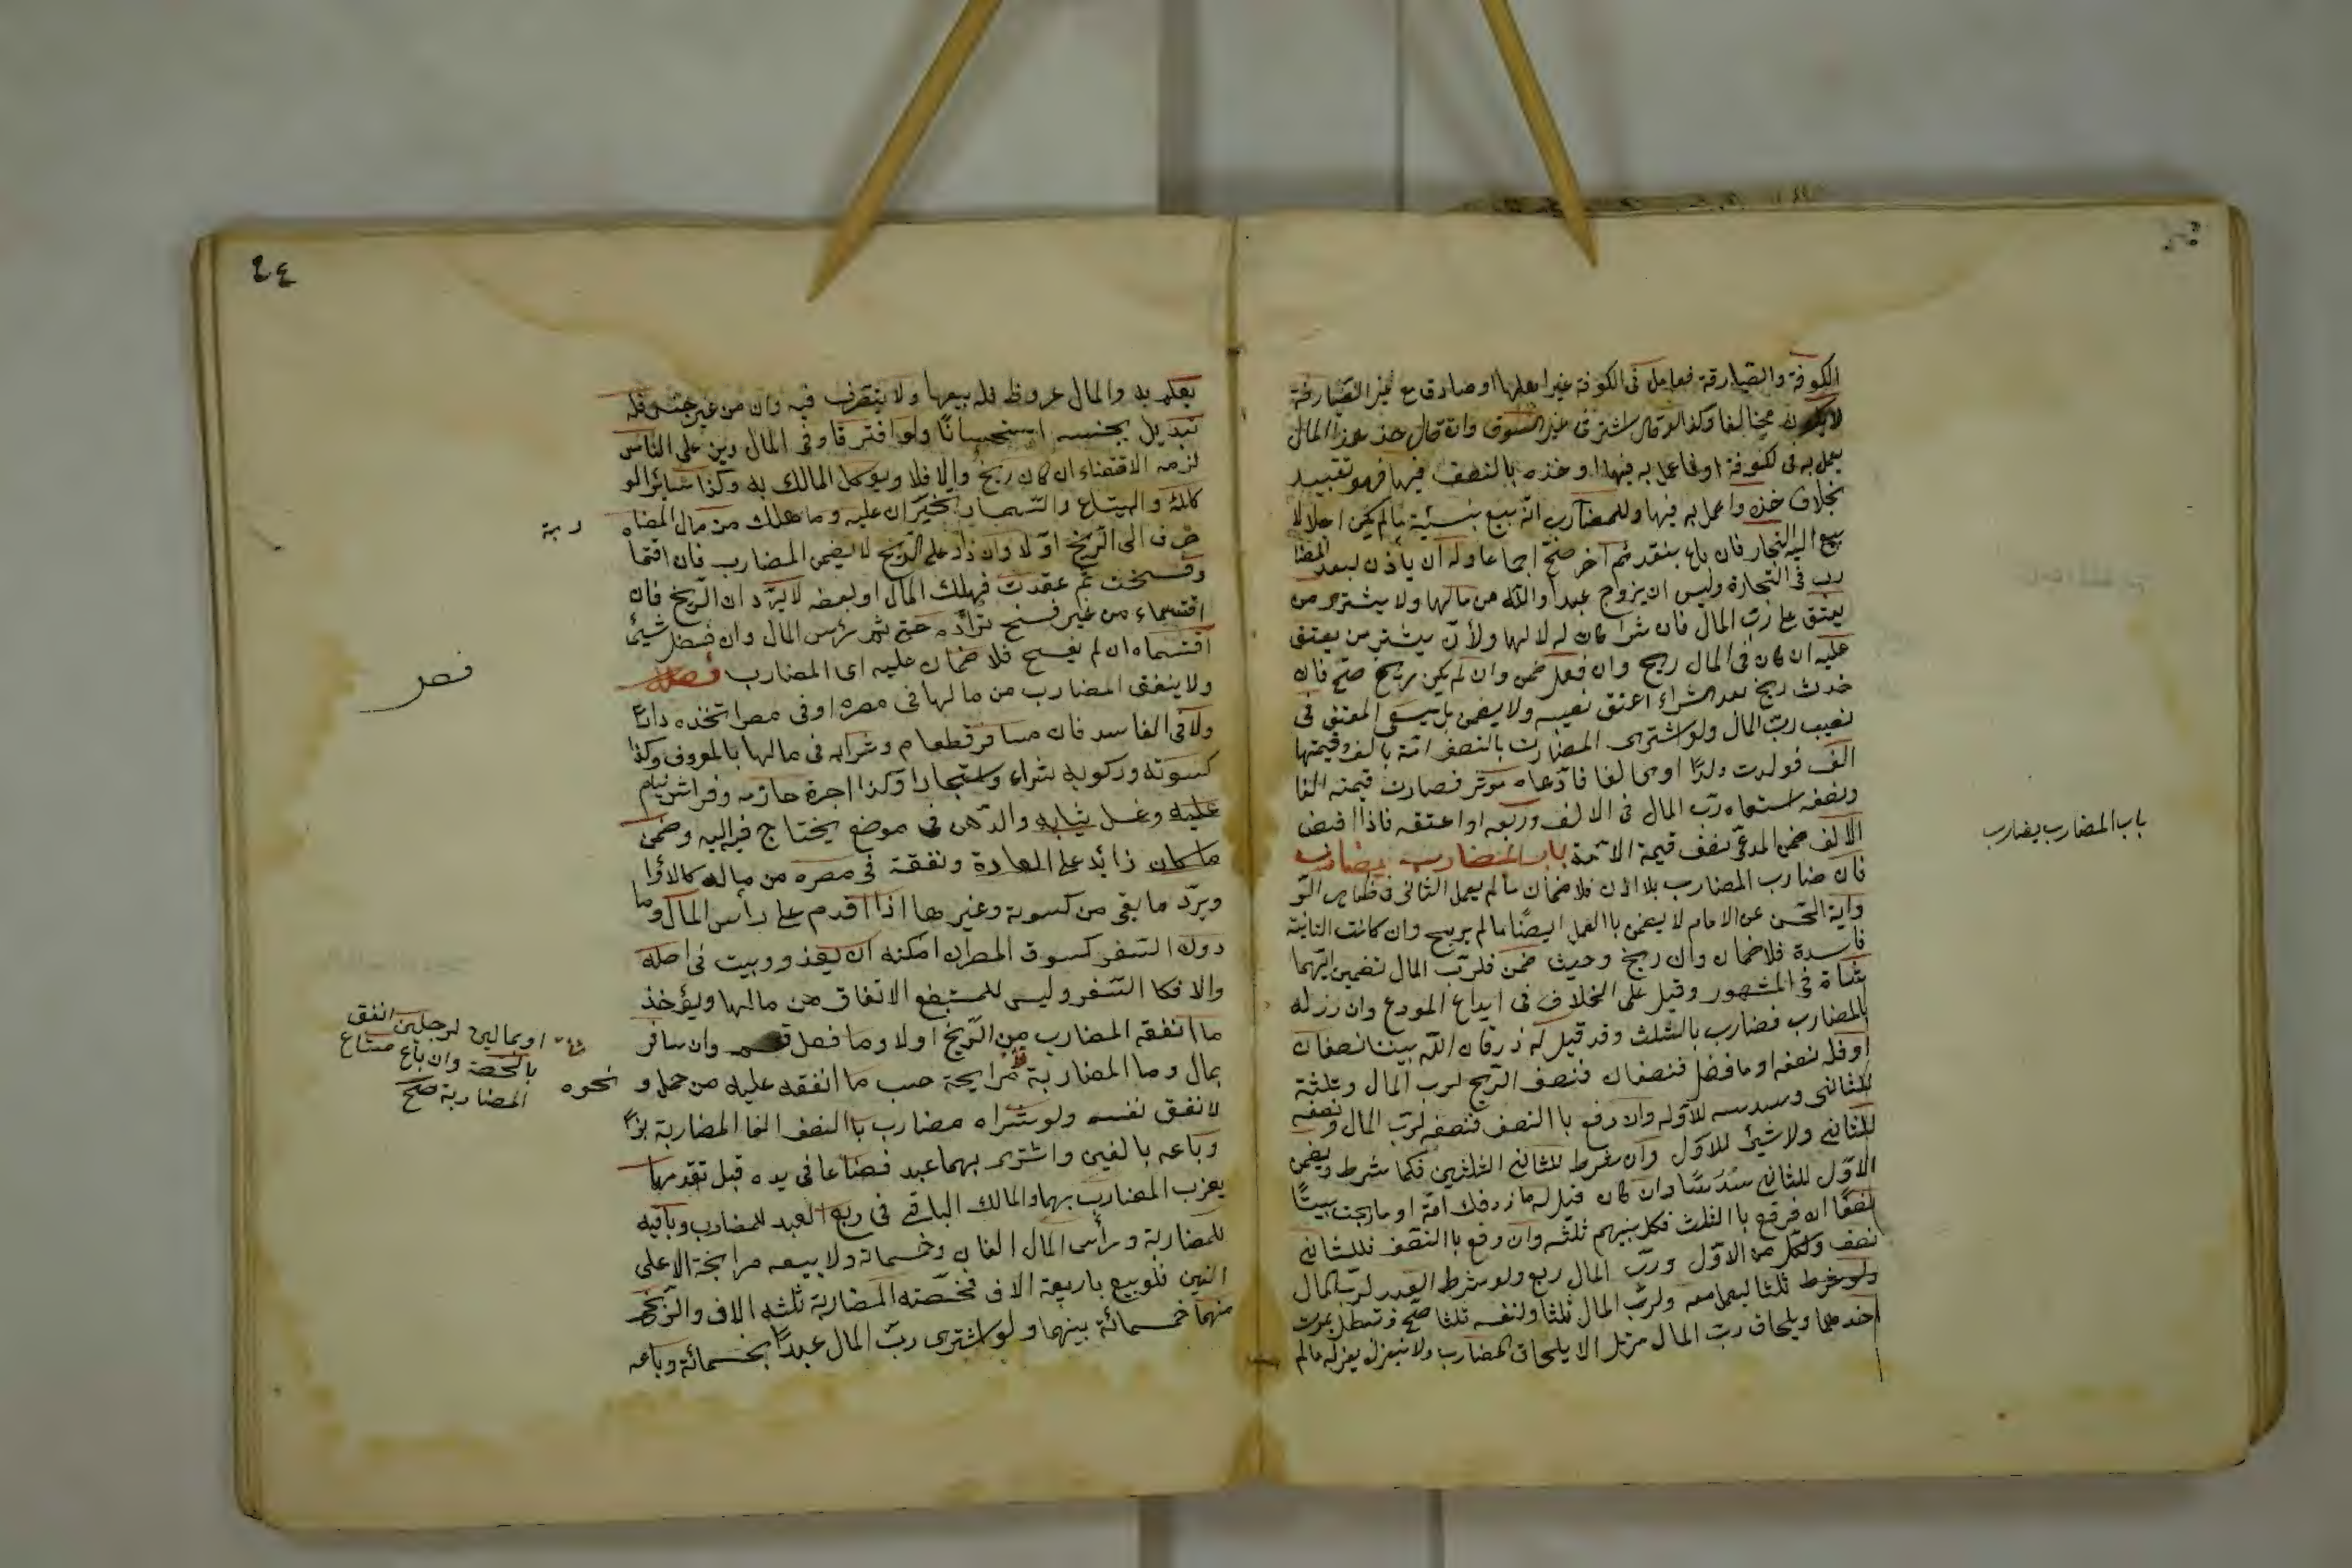 الكوفة والصيارفة فعامل فى الكوفة غير اهلها او صارف مع غير الصيارفة
لا يكون مخالفا وكذا لو قال اشتر فى غير السوق وان قال خذ هذا المال
يعمل به فى لكوفة او فاعمل به فيها او خذه بالنصف فيها فهو تقييد
بخلاف خذه واعمل به فيها وللمضارب ان يبيع بنسيئة ما لم يكن اجلا لا
يبيع اليه التجار فان باع بنقد ثم اخر صح اجماعا وله ان يأذن لعبد المضا
رب فى التجارة وليس ان يزوج عبدا او امة من مالها ولا يشترى من
يعتق على رب المال فان شرا كان له لا لها ولا ان يشترى من يعتق
عليه ان كان فى المال ربح وان فعل ضمن وان لم يكن ربح صح فان
حدث ربح بعد الشراء اعتق نصيبه ولا يضمن بل يسعى المعتق فى
نصيب رب المال ولو اشترى المضارب بالنصف امة بالف وقيمتها
الف فولدت ولدا يساوى الفا فادعاه موسر فصارت قيمته الفا
ونصفه استسعاه رب المال فى الالف وربعه او اعتقه فاذا قبض
الالف ضمن المدعى نصف قيمة الامة باب المضارب يضارب
فان ضارب المضارب بلا اذن فلا ضمان ما لم يعمل الثانى فى ظاهر الرو
واية الحسن عن الامام لا يضمن باالعمل ايضا ما لم يربح وان كانت الثانية
فاسدة فلا ضمان وان ربح وحيث ضمن فلرب المال تضمين ايهما
شاة فى المشهور وقيل على الخلاف فى ايداع المودع وان رز له
بالمضارب فضارب بالثلث وقد قيل له ما رزق الله بيننا نصفان
او فله نصفه او ما فضل فنصفان فنصف الربح لرب المال وثلثة
للثانى وسدسه للاول وان دفع باالنصف فنصفه لرب المال ونصفه
للثانى ولا شئ للاول وان شرط للثانى الثلثين فكما شرط ويضمن
الاول للثانى سدسا وان كان قيل له ما رزقك الله او ما ربحت بيننا
نصفا ان دفع باالثلث فكل بينهم ثلثه وان دفع باالنصف فللثانى
نصف ولكل من الاول ورب المال ربع ولو شرط لعبد لرب المال
ولو شرط ثلثا ليعمل معه ولرب المال ثلثا ولنفسه ثلثا صح وتبطل بموت
احدهما وبلحاق رب المال مرتدا لا بلحاق المضارب ولا ينعزل بعزله مالم
باب المضارب يضارب
٤٤
يعلم به والمال عروض فله بيعها ولا يتصرف فيه وان من غير جنسه فله
تبديل بجنسه استحسانا ولو افترقا وفى المال دين على الناس
لزمه الاقتضاء ان كان ربح والا فلا ويوكل المالك به وكذا سائر الو
كلاء والبياع والسمسار يجبران عليه وما هلك من مال المضا
ربة
صرف الى الربح اولا وان زاد على الربح لا يضمن المضارب فان اقتما
وفسخت ثم عقدت فهلك المال او بعضه لا يرد ان الربح فان
اقتسماه من غير فسخ تراداه حتى يتم رئس المال وان فضل شيئا
اقتسماه ان لم يفسخ فلا ضمان عليه اى المضارب فصل
فصل
ولا ينفق المضارب من مالها فى مصره او فى مصر اتخذه دارا
ولا فى الفاسد فان سافر فطعام وشرابه فى مالها بالمعروف وكذا
كسوته وركوبه شراء واستجارا وكذا اجرة خادمه وفراش ينام
عليه وغسل ثيابه والدهن فى موضع يحتاج فيه اليه وضمن
ما كان زائد على العادة ونفقة فى مصره من ماله كالدوا
ويرد ما بقى من كسوة وغيرها اذا قدم على رأس المال وما
دون السفر كسوق المصر ان امكنه ان يغدو ويبيت فى اهله
والا فكا السفر وليس للمستبضع الانفاق من مالها ويؤخذ
ما انفقه المضارب من الربح اولا وما فضل قسم وان سافر
شا او بمالين لرجلين انفق
بالحصة وان باع متاع
المضاربة صح
بمال وما المضاربة مرابحة حسب ما انفقه عليه من حمل و
نحوه
لا نفق نفسه ولو شراه مضارب باالنصف الفا المضاربة بزا
وباعه بالفين واشترى بهما عبد فضاعا فى يده قبل نقدهما
يغرم المضارب بهما والمالك الباقى فى ربع العبد للمضارب وباقيه
للمضاربة ورأس المال الفان وخمسمائة ولا يبيعه مرابحة الا على
الفين فلو بيع باربعة الاف فحصته المضاربة ثلثه الاف والربح
منهما خمسمائة بينهما ولو اشترى رب المال عبدا بخمسمائة وباعه